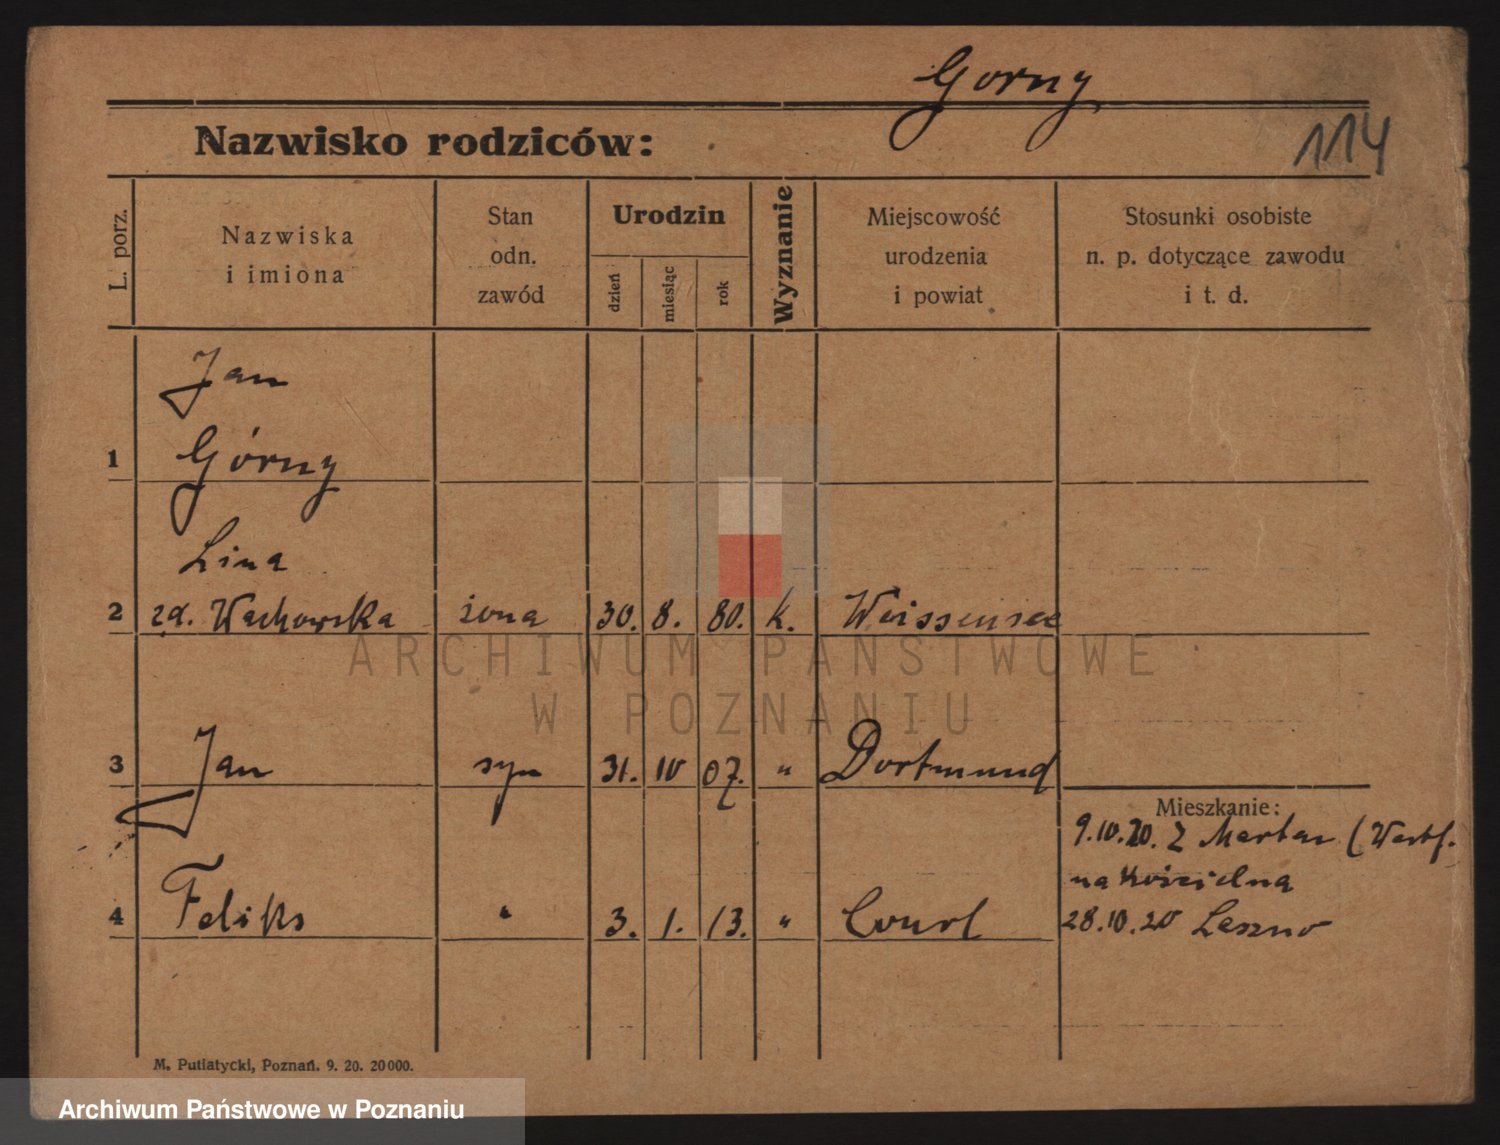 Gorny
Nazwisko rodziców:
114
L. porz.
Nazwiska
i imiona
Stan
odn.
zawód
Urodzin
dzień
miesiąc
rok
Wyznanie
Miejscowość
urodzenia
i powiat
Stosunki osobiste
n. p. dotyczące zawodu
i t. d.
Jan
1 Górny
Lina
2 zd. Wachowska żona 30. 8. 80. k. Weissensee
3 Jan syn 31. 10 07. " Dortmund
Mieszkanie:
9.10.20. Z Merten (Westf.
na Kościelna
4 Feliks " 3. 1. 13. " Courl
28.10.20 Leszno
M. Putiatycki, Poznań. 9. 20. 20000.
ARCHIWUM PAŃSTWOWE
W POZNANIU
Archiwum Państwowe w Poznaniu